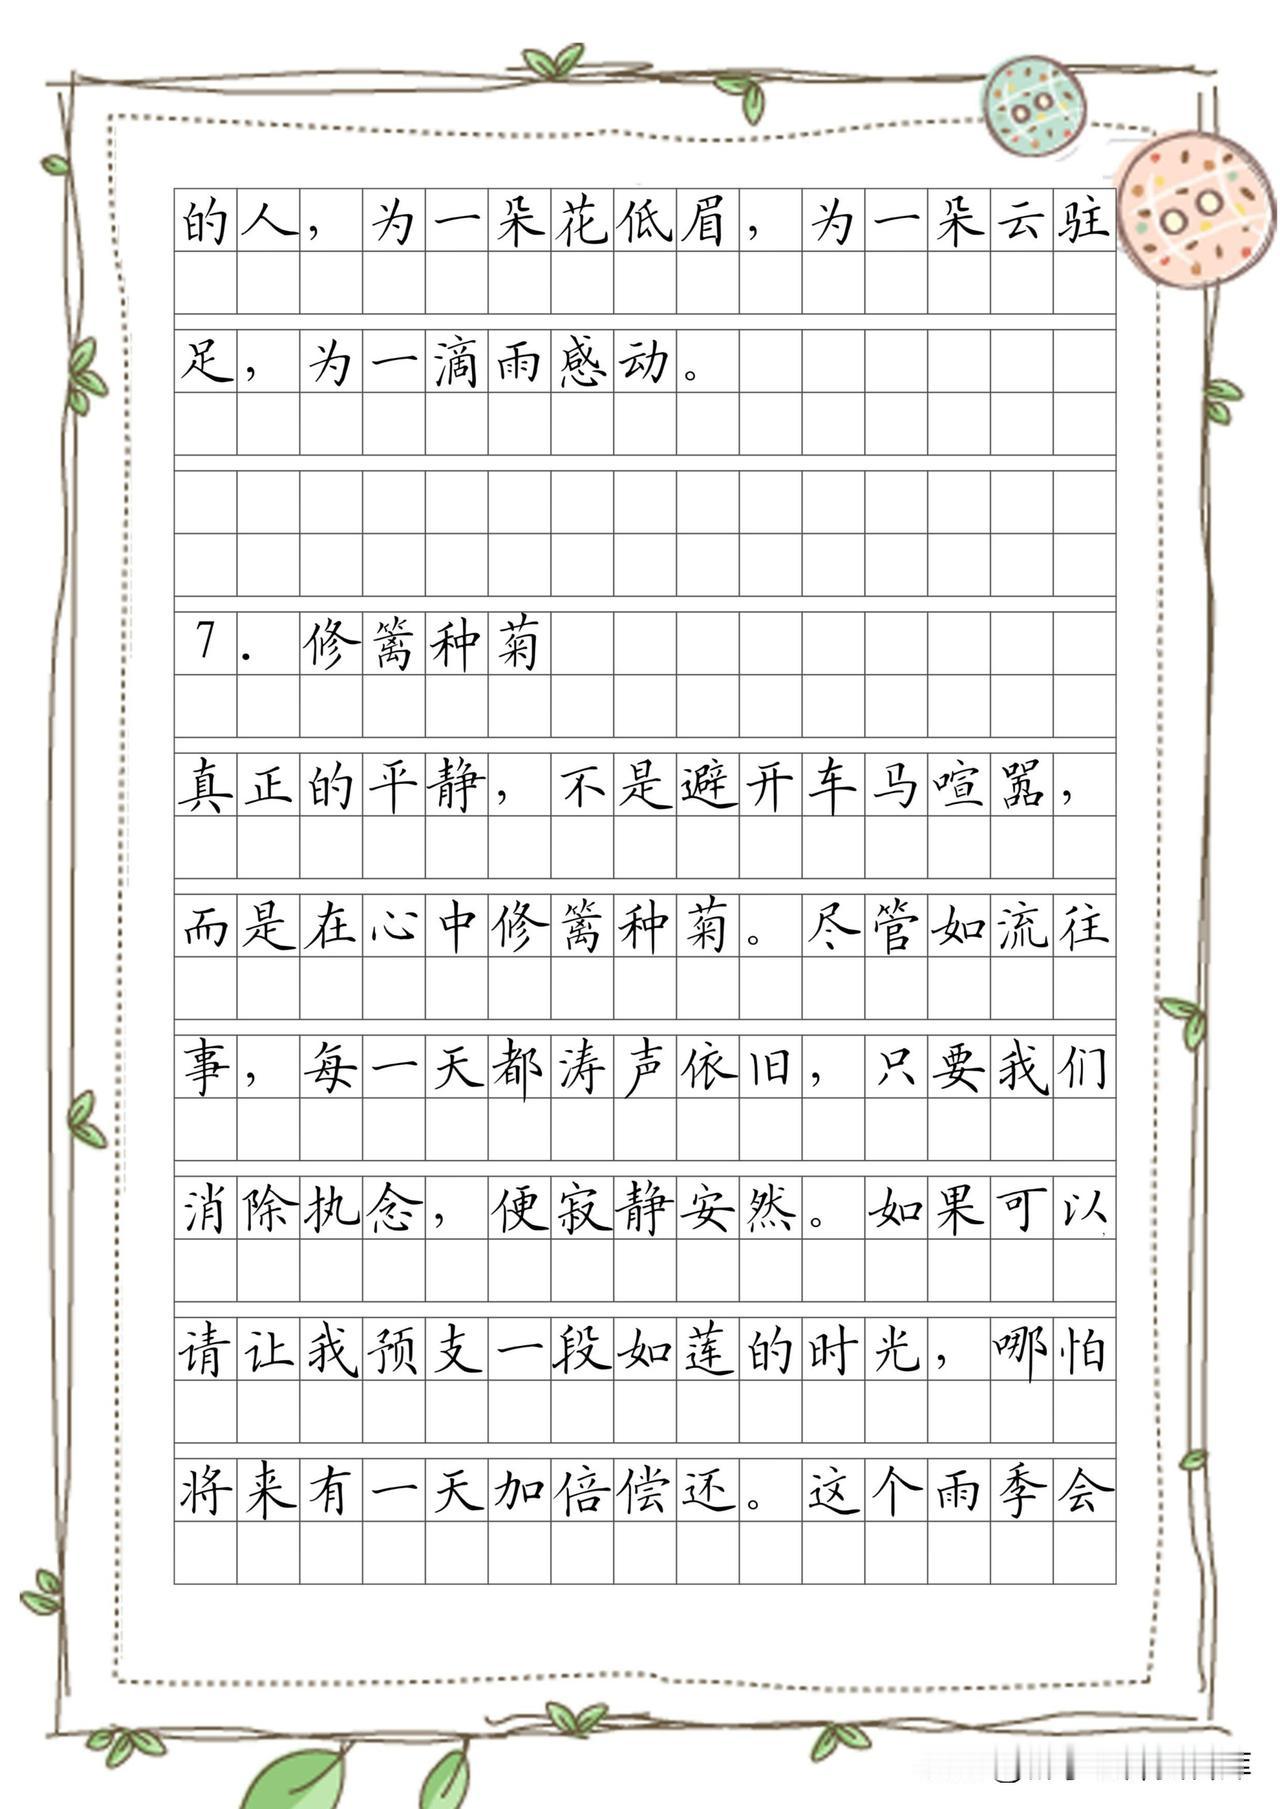 的人，为一朵花低眉，为一朵云驻
足，为一滴雨感动。
7.修篱种菊
真正的平静，不是避开车马喧嚣，
而是在心中修篱种菊。尽管如流往
事，每一天都涛声依旧，只要我们
消除执念，便寂静安然。如果可以，
请让我预支一段如莲的时光，哪怕
将来有一天加倍偿还。这个雨季会